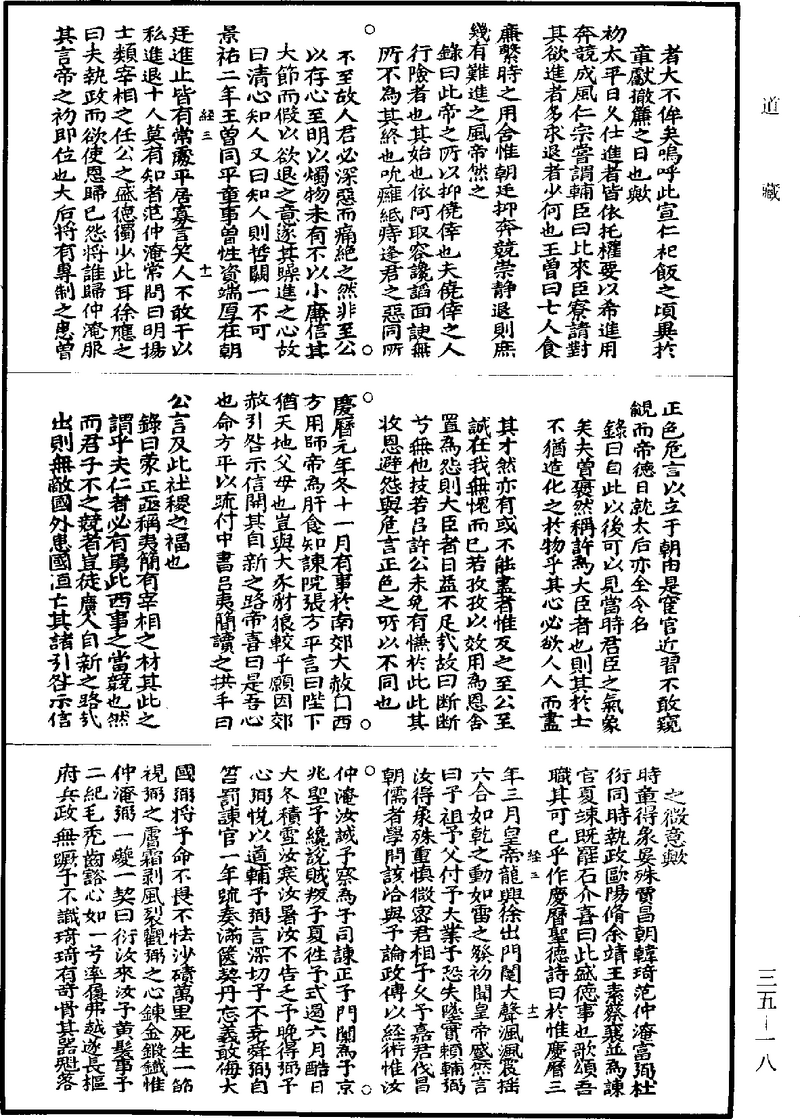 道藏
者大不侔矣嗚呼此宣仁祀飯之頃異於
章獻撤簾之日也歟
初太平日久仕進者皆依托權要以希進用
奔競成風仁宗嘗謂輔臣曰比來臣寮請對
其欲進者多求退者少何也王曾曰士人貪
廉繫時之用舍惟朝廷抑奔競崇静退則庶
幾有難進之風帝然之
錄曰此帝之所以抑僥倖也夫僥倖之人
行險者也其始也依阿取容讒謟面諛無
所不為其終也吮癰舐痔逢君之惡同所
不至故人君必深惡而痛絶之然非至公
以存心至明以燭物未有不以小廉信其
大節而假以欲退之意遂其躁進之心故
曰清心知人又曰知人則哲闕一不可
景祐二年王曾同平章事曾性資端厚在朝
廷進止皆有常處平居寡言笑人不敢干以
私進退士人莫有知者范仲淹常問曰明揚
士類宰相之任公之盛德獨少此耳徐應之
曰夫執政而欲使恩歸己怨將誰歸仲淹服
其言帝之初即位也太后將有專制之患曾
經三
十一
正色危言以立于朝由是宦官近習不敢窺
覦而帝德日就太后亦全令名
錄曰自此以後可以見當時君臣之氣象
矣夫曾褎然稱許為大臣者也則其於士
不猶造化之於物乎其心必欲人人而盡
其才然亦有或不能盡者惟反之至公至
誠在我無愧而已若孜孜以效用為恩舍
置為怨則大臣者日益不足哉故曰斷斷
兮無他技若呂許公未免有慊於此此其
收恩避怨與危言正色之所以不同也
慶曆元年冬十一月有事於南郊大赦囗西
方用師帝為旰食知諫院張方平言曰陛下
猶天地父母也豈與犬豕豺狼較乎願因郊
赦引咎示信開其自新之路帝喜曰是吾心
也命方平以疏付中書呂夷簡讀之拱手曰
公言及此社稷之福也
錄曰蒙正亟稱夷簡有宰相之材其此之
謂乎夫仁者必有勇此西事之當競也然
而君子不之競者豈徒廣人自新之路哉
出則無敵國外患國恒亡其諸引咎示信
之微意歟
時章得象晏殊賈昌朝韓琦范仲淹富弼杜
衍同時執政歐陽脩余靖王素蔡襄並為諫
官夏竦既罷石介喜曰此盛德事也歌頌吾
職其可已乎作慶曆聖德詩曰於惟慶曆三
年三月皇帝龍興徐出門闥大聲渢渢震揺
六合如乾之動如雷之發初聞皇帝慼然言
曰予祖予父付予大業予恐失墜實頼輔弼
汝得象殊重慎微密君相予久予嘉君伐昌
朝儒者學問該洽與予論政傅以經術惟汝
仲淹汝誠予察為予司諫正予門闑為予京
兆聖予讒說賊叛予夏往予式遏六月酷日
大冬積雪汝寒汝暑汝不告乏予晚得弼予
心弼悅以道輔予弼言深切予不堯舜弼自
笞罰諫官一年疏奏滿篋契丹忘義敢侮大
國弼將予命不畏不怯沙磧萬里死生一節
視弼之膚霜剥風裂觀弼之心鍊金鍛鐵惟
仲淹弼一夔一契曰衍汝來汝予黄髮事予
二紀毛禿齒豁心如一兮率履弗越遂長樞
府兵政無蹶予不識琦琦有奇骨其器魁落
經三
十二
三五—一八